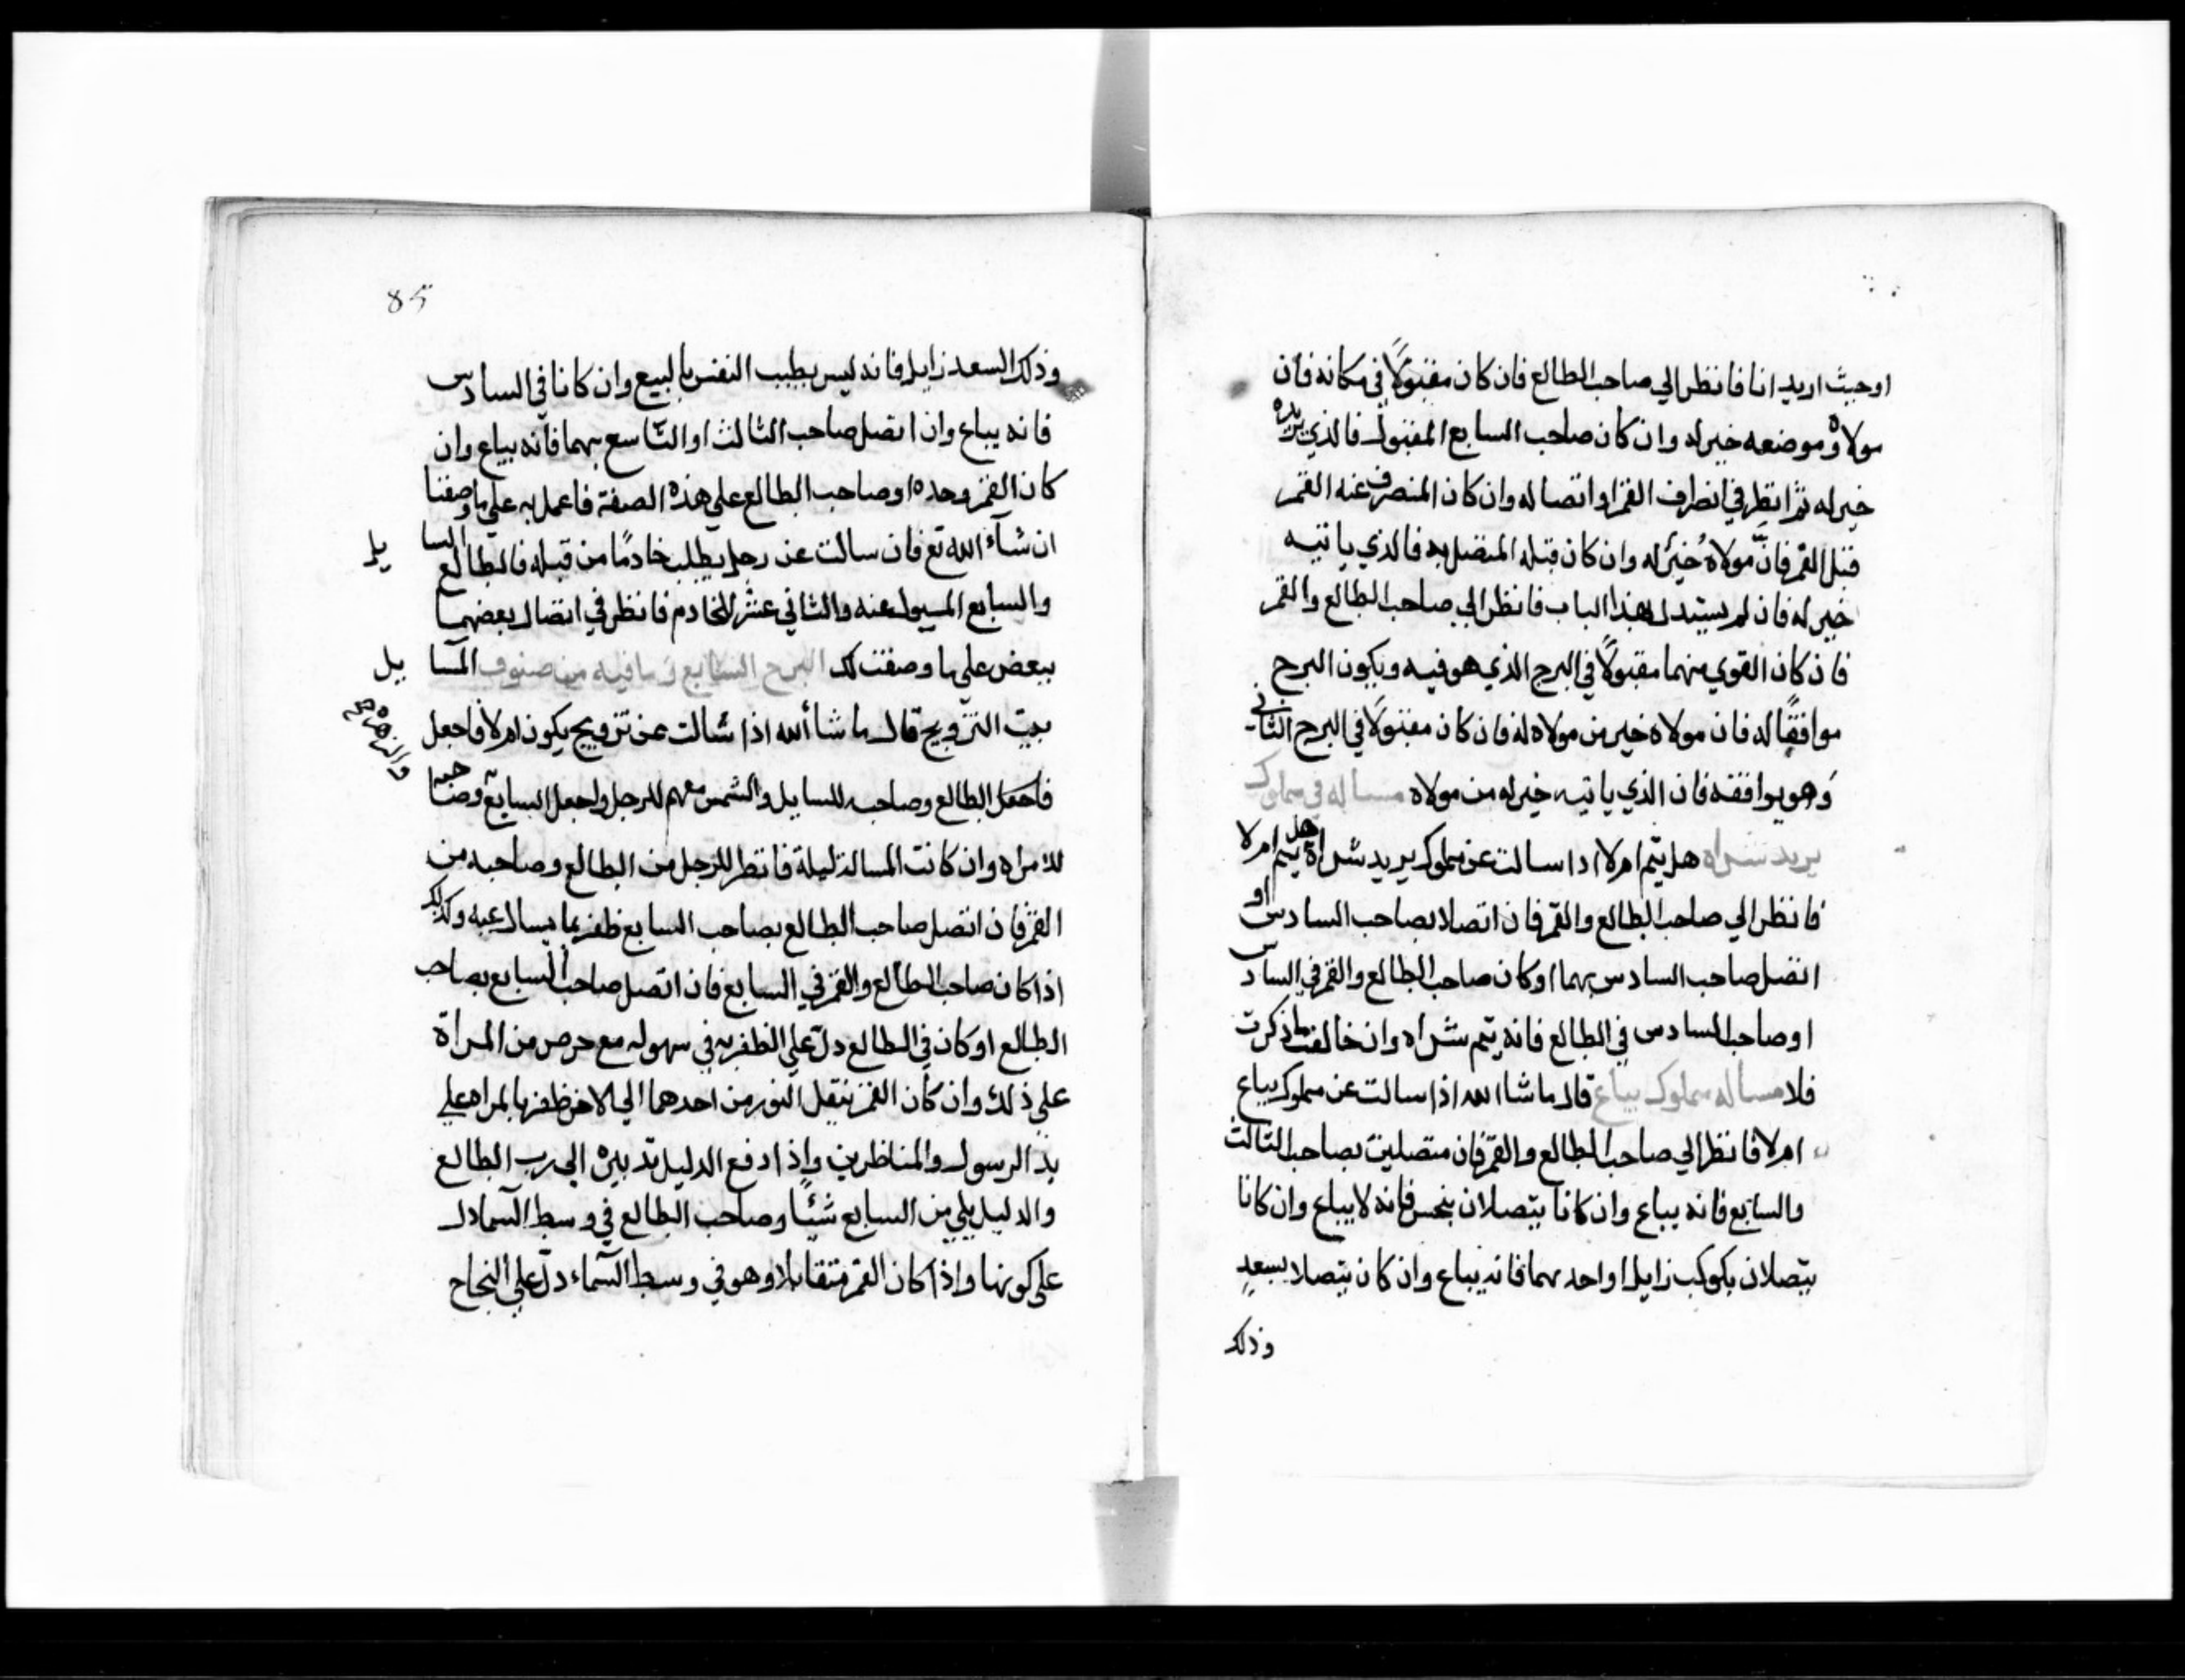 اوحيث اريد انا فانظر الي صاحب الطالع فان كان مقبولًا في مكانه فان
مولاه وموضعه خير له وان كان صاحب السابع المقبول فالذي يريده
خير له ثم انظر في انصراف القمر او اتصاله وان كان المنصرف عنه القمر
قبل القمر فانّ مولاهُ خيرٌ له وان كان قبله المتصل به فالذي ياتيه
خير له فان لم يستدل بهذا الباب فانظر الي صاحب الطالع والقمر
فان كان القوي منهما مقبولًا في البرج الذي هو فيه ويكون البرج
موافقًا له فان مولاه خير من مولاه له فان كان مقبولًا في البرج الثاني
وَهو يوافقه فان الذي ياتيه خير له من مولاه مساله في مملوك
يريد شراه هل يتم ام لا اذا سالت عن مملوك يريد شراه هل يتم ام لا
فانظر الي صاحب الطالع والقمر فان اتصلا بصاحب السادس او
اتصل صاحب السادس بهما او كان صاحب الطالع والقمر في السادس
او صاحب السادس في الطالع فانه يتم شراه وان خالف ما ذكرت
فلا مساله مملوك يباع قال ما شا الله اذا سالت عن مملوك يباع
ام لا فانظر الي صاحب الطالع والقمر فان متصلين بصاحب الثالث
والسابع فانه يباع وان كانا يتصلان بنحس فانه لا يباع وان كانا
يتصلان بكوكب زايل او احد بهما فانه يباع وان كان يتصلا بسعدٍ
وذلك
85
وذلك السعد زايل فانه ليس بطيب النفس بالبيع وان كانا في السادس
فانه يباع وان اتصل صاحب الثالث او التاسع بهما فانه يباع وان
كان القمر وحده او صاحب الطالع علي هذه الصفة فاعمل به علي ما وصفنا
ان شآء الله تع فان سالت عن رجل يطلب خادمًا من قبله فالطالع للسا يل
والسابع المسيول عنه والثاني عشر للخادم فانظر في اتصال بعضهما
ببعض علي ما وصفت لك البرج السابع وما فيه من صنوف المسا يل
بيت التزويج قال ما شا الله اذا سالت عن تزويج يكون ام لا فاجعل
فاجعل الطالع وصاحبه للسايل والشمس معهم للرجل واجعل السابع وصاحبه والزهره
للامراه وان كانت المسالة ليلة فانظر للرجل من الطالع وصاحبه من
القمر فان اتصل صاحب الطالع بصاحب السابع ظفر بما يسال عنه وكذلك
اذا كان صاحب الطالع والقمر في السابع فان اتصل صاحب السابع بصاحب
الطالع او كان في الطالع دلّ علي الظفر به في سهوله مع حرص من المراة
علي ذلك وان كان القمر ينقل النور من احدهما الي الاخر ظفر بالمراه علي
يد الرسول والمناظرين واذا دفع الدليل تدبيره الي رب الطالع
والدليل يلي من السابع شئًا وصاحب الطالع في وسط السما دل
علي كونها واذا كان القمر متقابلا وهو في وسط السماء دلّ علي النجاح